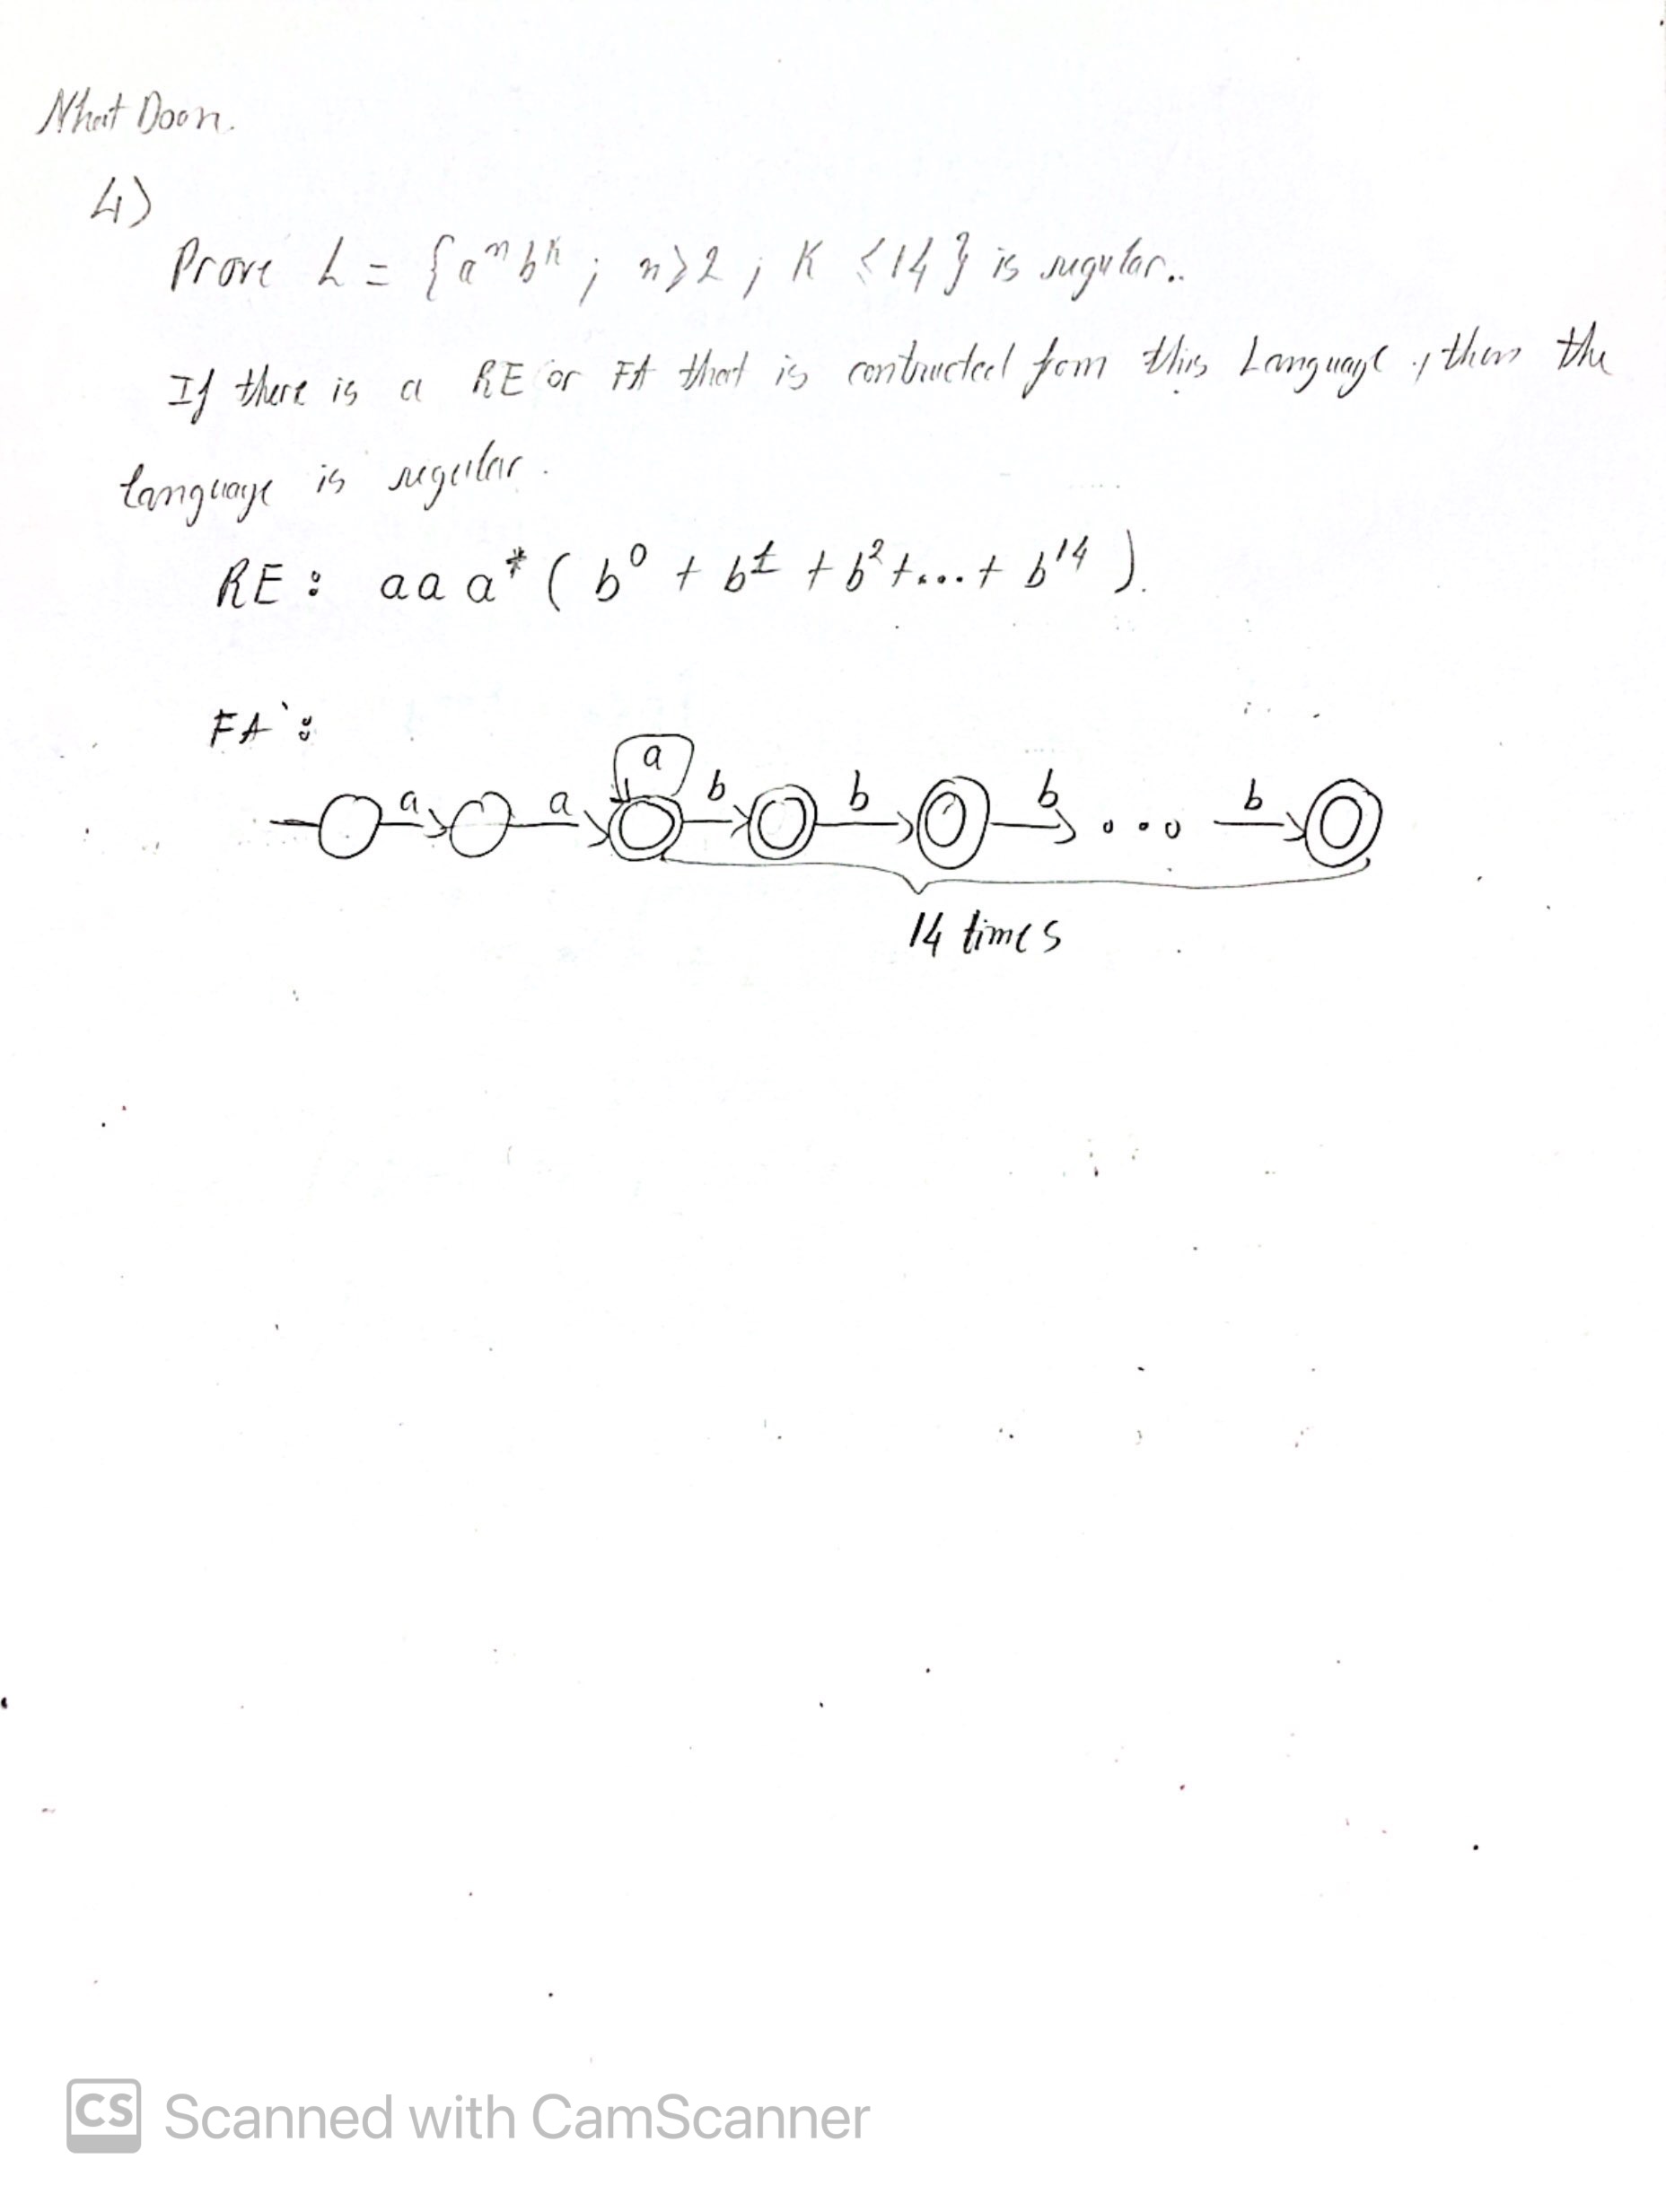 Nhat Doan.
4)
Prove L = {aⁿbᵏ ; n ≥ 2 ; K ≤ 14 } is regular..
If there is a RE or FA that is contructed fom this Language , then the
language is regular.
RE : aa a* ( b⁰ + b¹ + b² + ... + b¹⁴ ).
FA :
a a a b b b ... b
14 times
CS Scanned with CamScanner